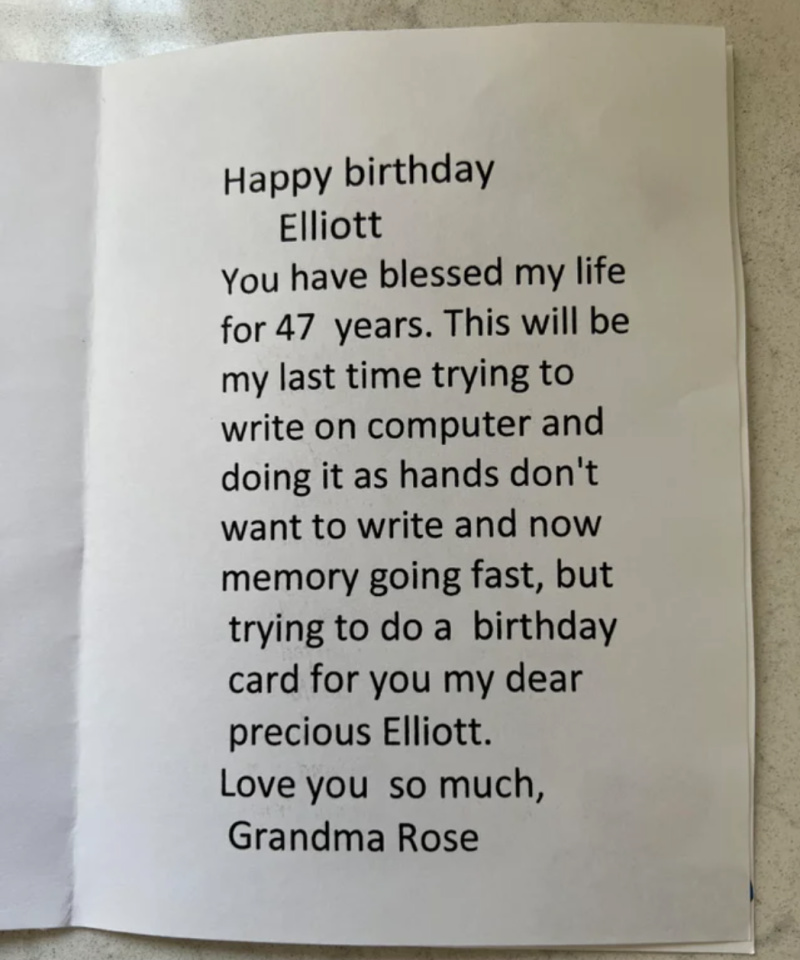 Happy birthday
Elliott
You have blessed my life
for 47  years. This will be
my last time trying to
write on computer and
doing it as hands don't
want to write and now
memory going fast, but
trying to do a  birthday
card for you my dear
precious Elliott.
Love you  so much,
Grandma Rose